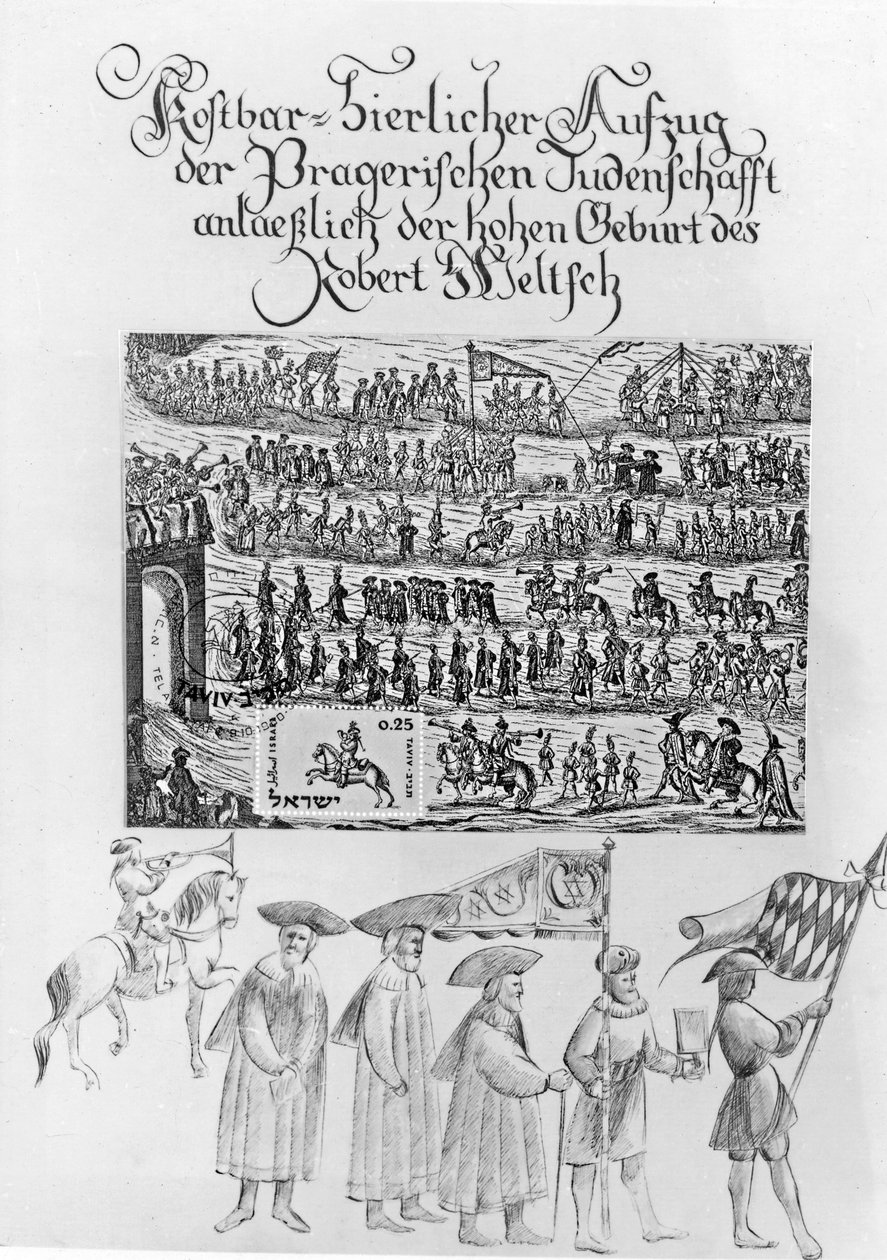 Kostbar=Zierlicher Aufzug
der Pragerischen Judenschafft
anlaeßlich der hohen Geburt des
Robert Weltsch
TEL A
TAVIV-תבי״ב
0.25
ISRAEL اسرائيل
TAVIV-תבי״ב
ישראל